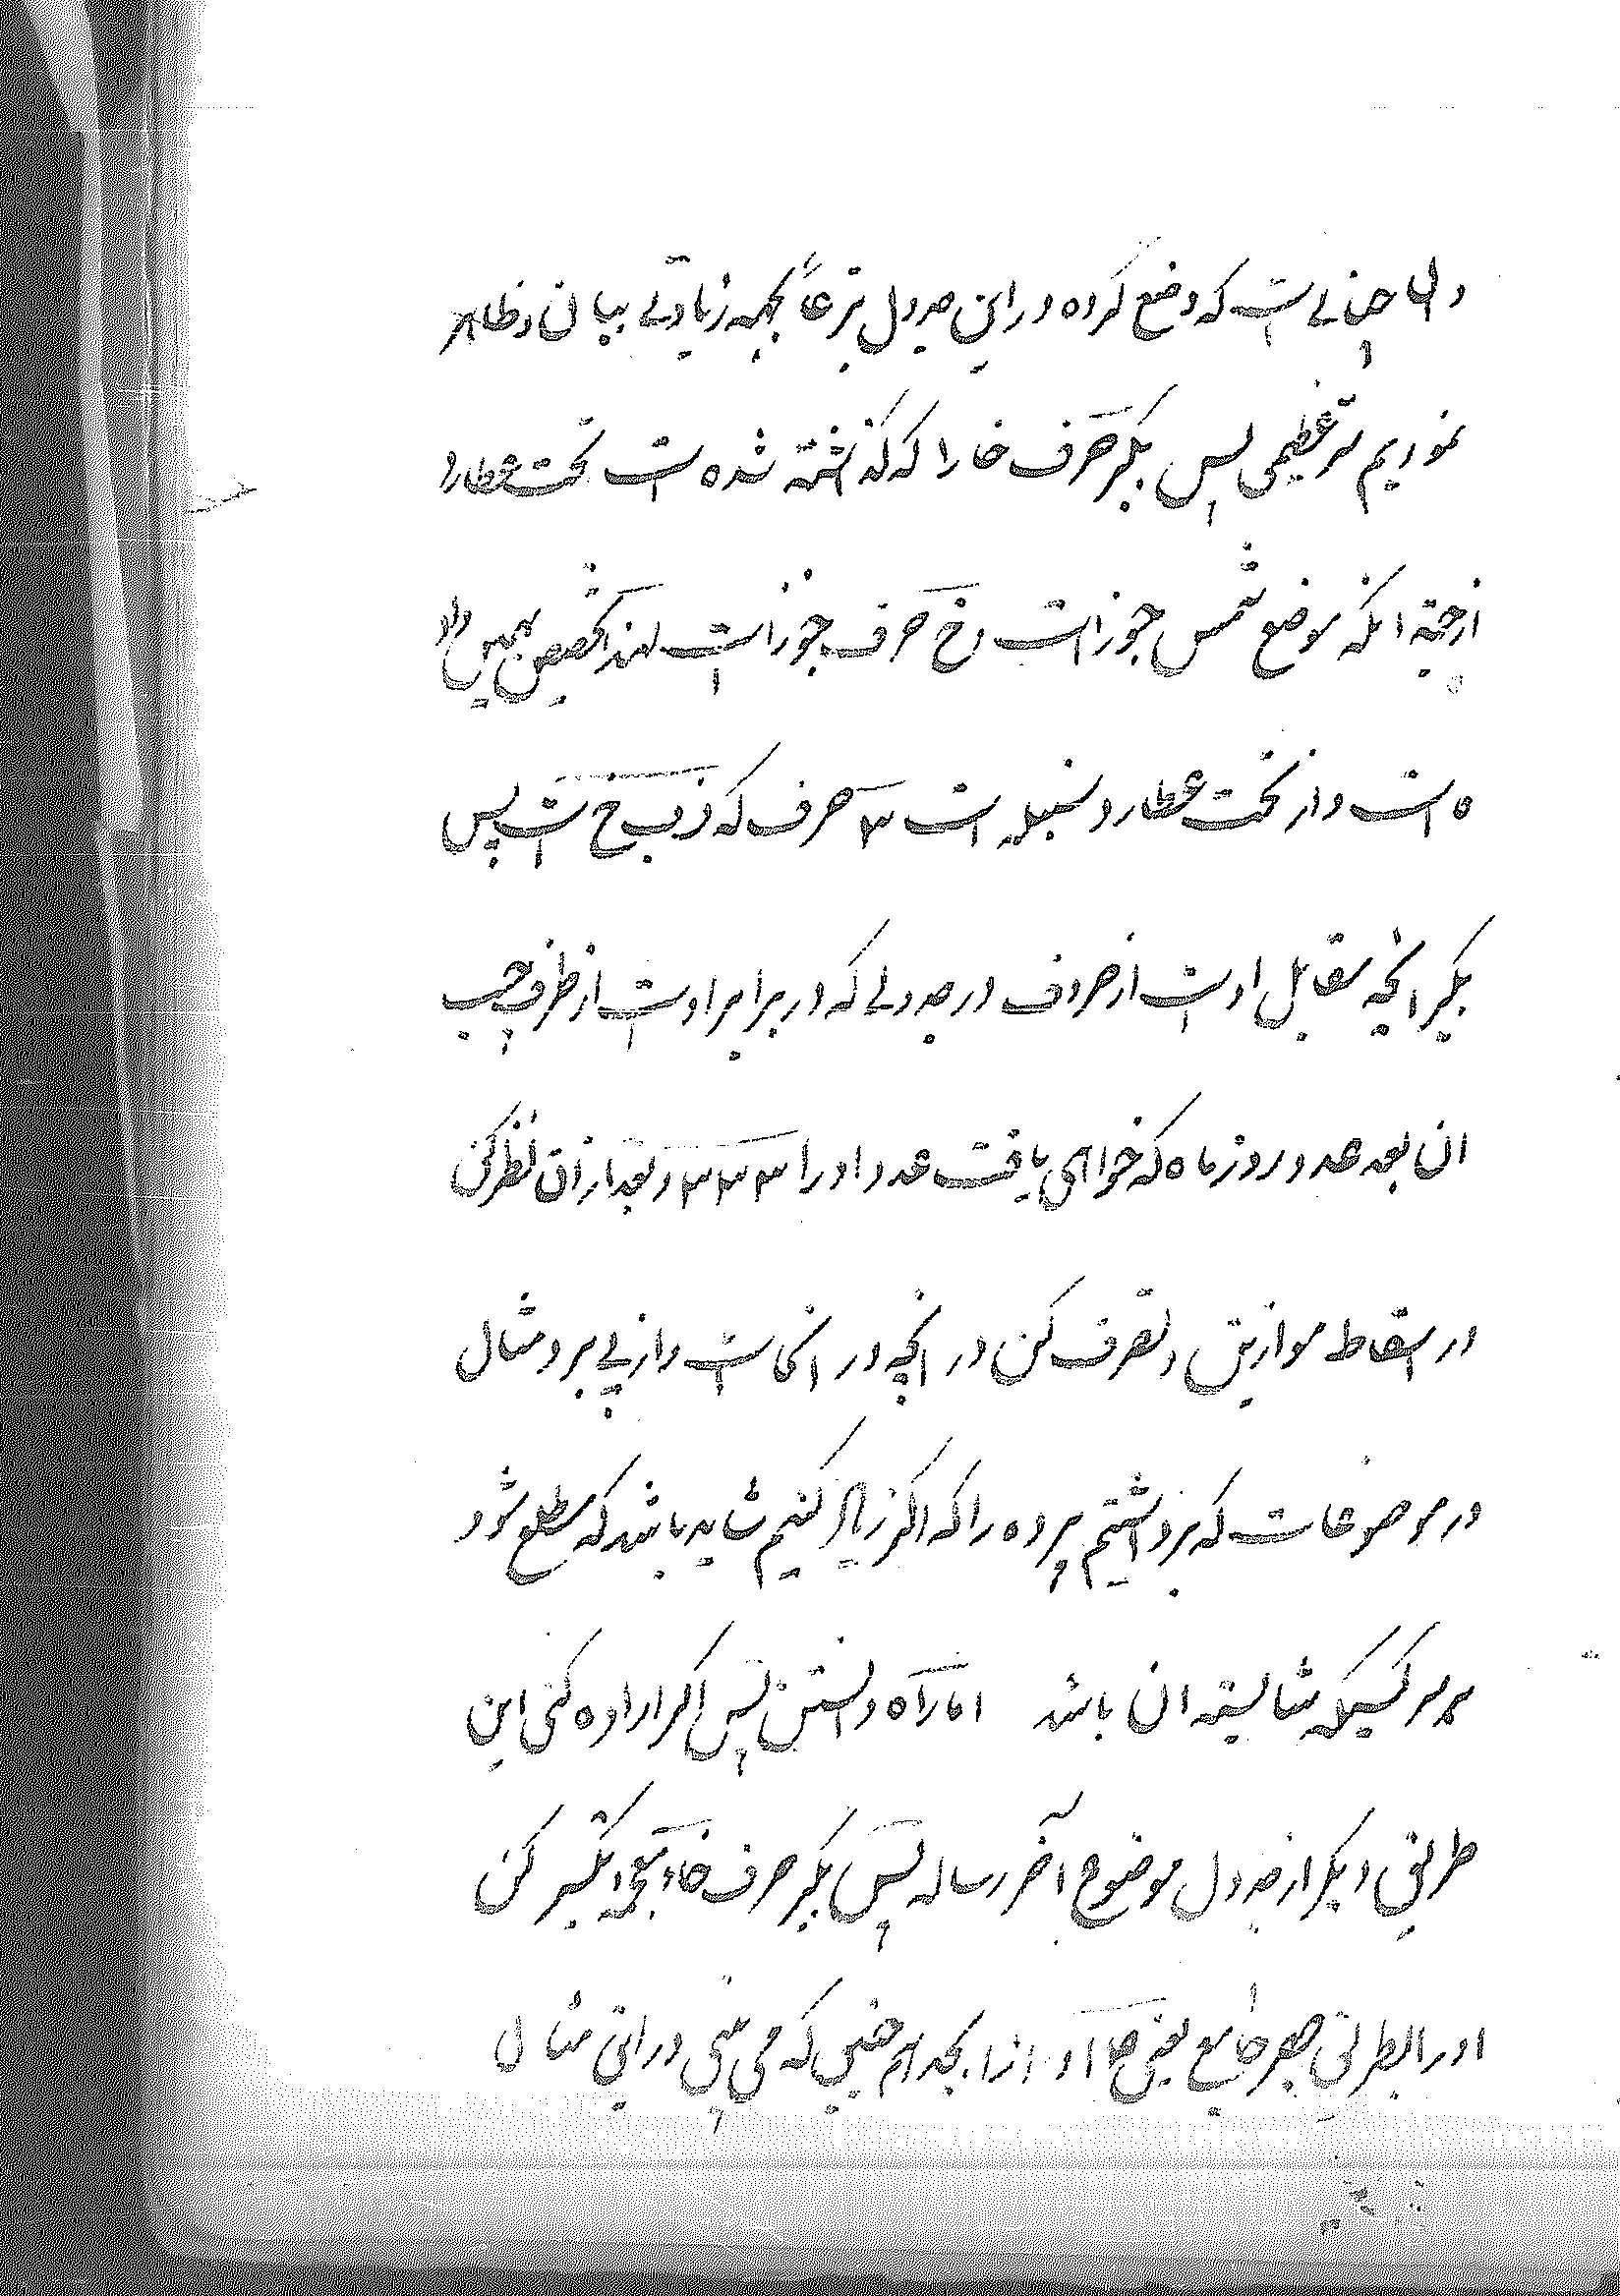 که وضع کرده در این جدول تبرعاً بجهه زیادتی بیان و ظاهر
نمودیم سر عظیمی پس بگیر حرف خا را که گذاشته شده است تحت عطارد
از جهة اینکه موضع شمس جوزاست و خ حرف جوزاست لهذا تخصیص بهمین داد
ه است و از تحت عطارد و سنبله است ۳ حرف که ذ ب خ است پس
بگیر انچه مقابل اوست از حروف در جدولی که در برابر اوست از طرف چپ
ان بعد عدد روز ماه که خواهی یافت عدد او را ۳ ۳ ۳ و بعد از ان نظر کن
در اسقاط موازین و تصرف کن در انچه در انجاست و از پی برو مثال
در موضوعات که برداشتیم پرده را که اگر زیاد کنیم شاید باشد که مطلع شود
بر سر کسیکه شایسته ان باشد اما راه دانستن پس اگر اراده کنی این
طریق دیگر از جدول موضوع آخر رساله پس بگیر حرف خاء معجمه و تکسیر کن
او را بطریق جفر جامع یعنی خا ا و از ابجد هم چنین که می بینی در این مثال